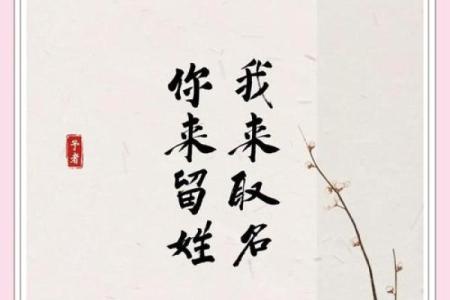 我来取名
你来留姓
予者